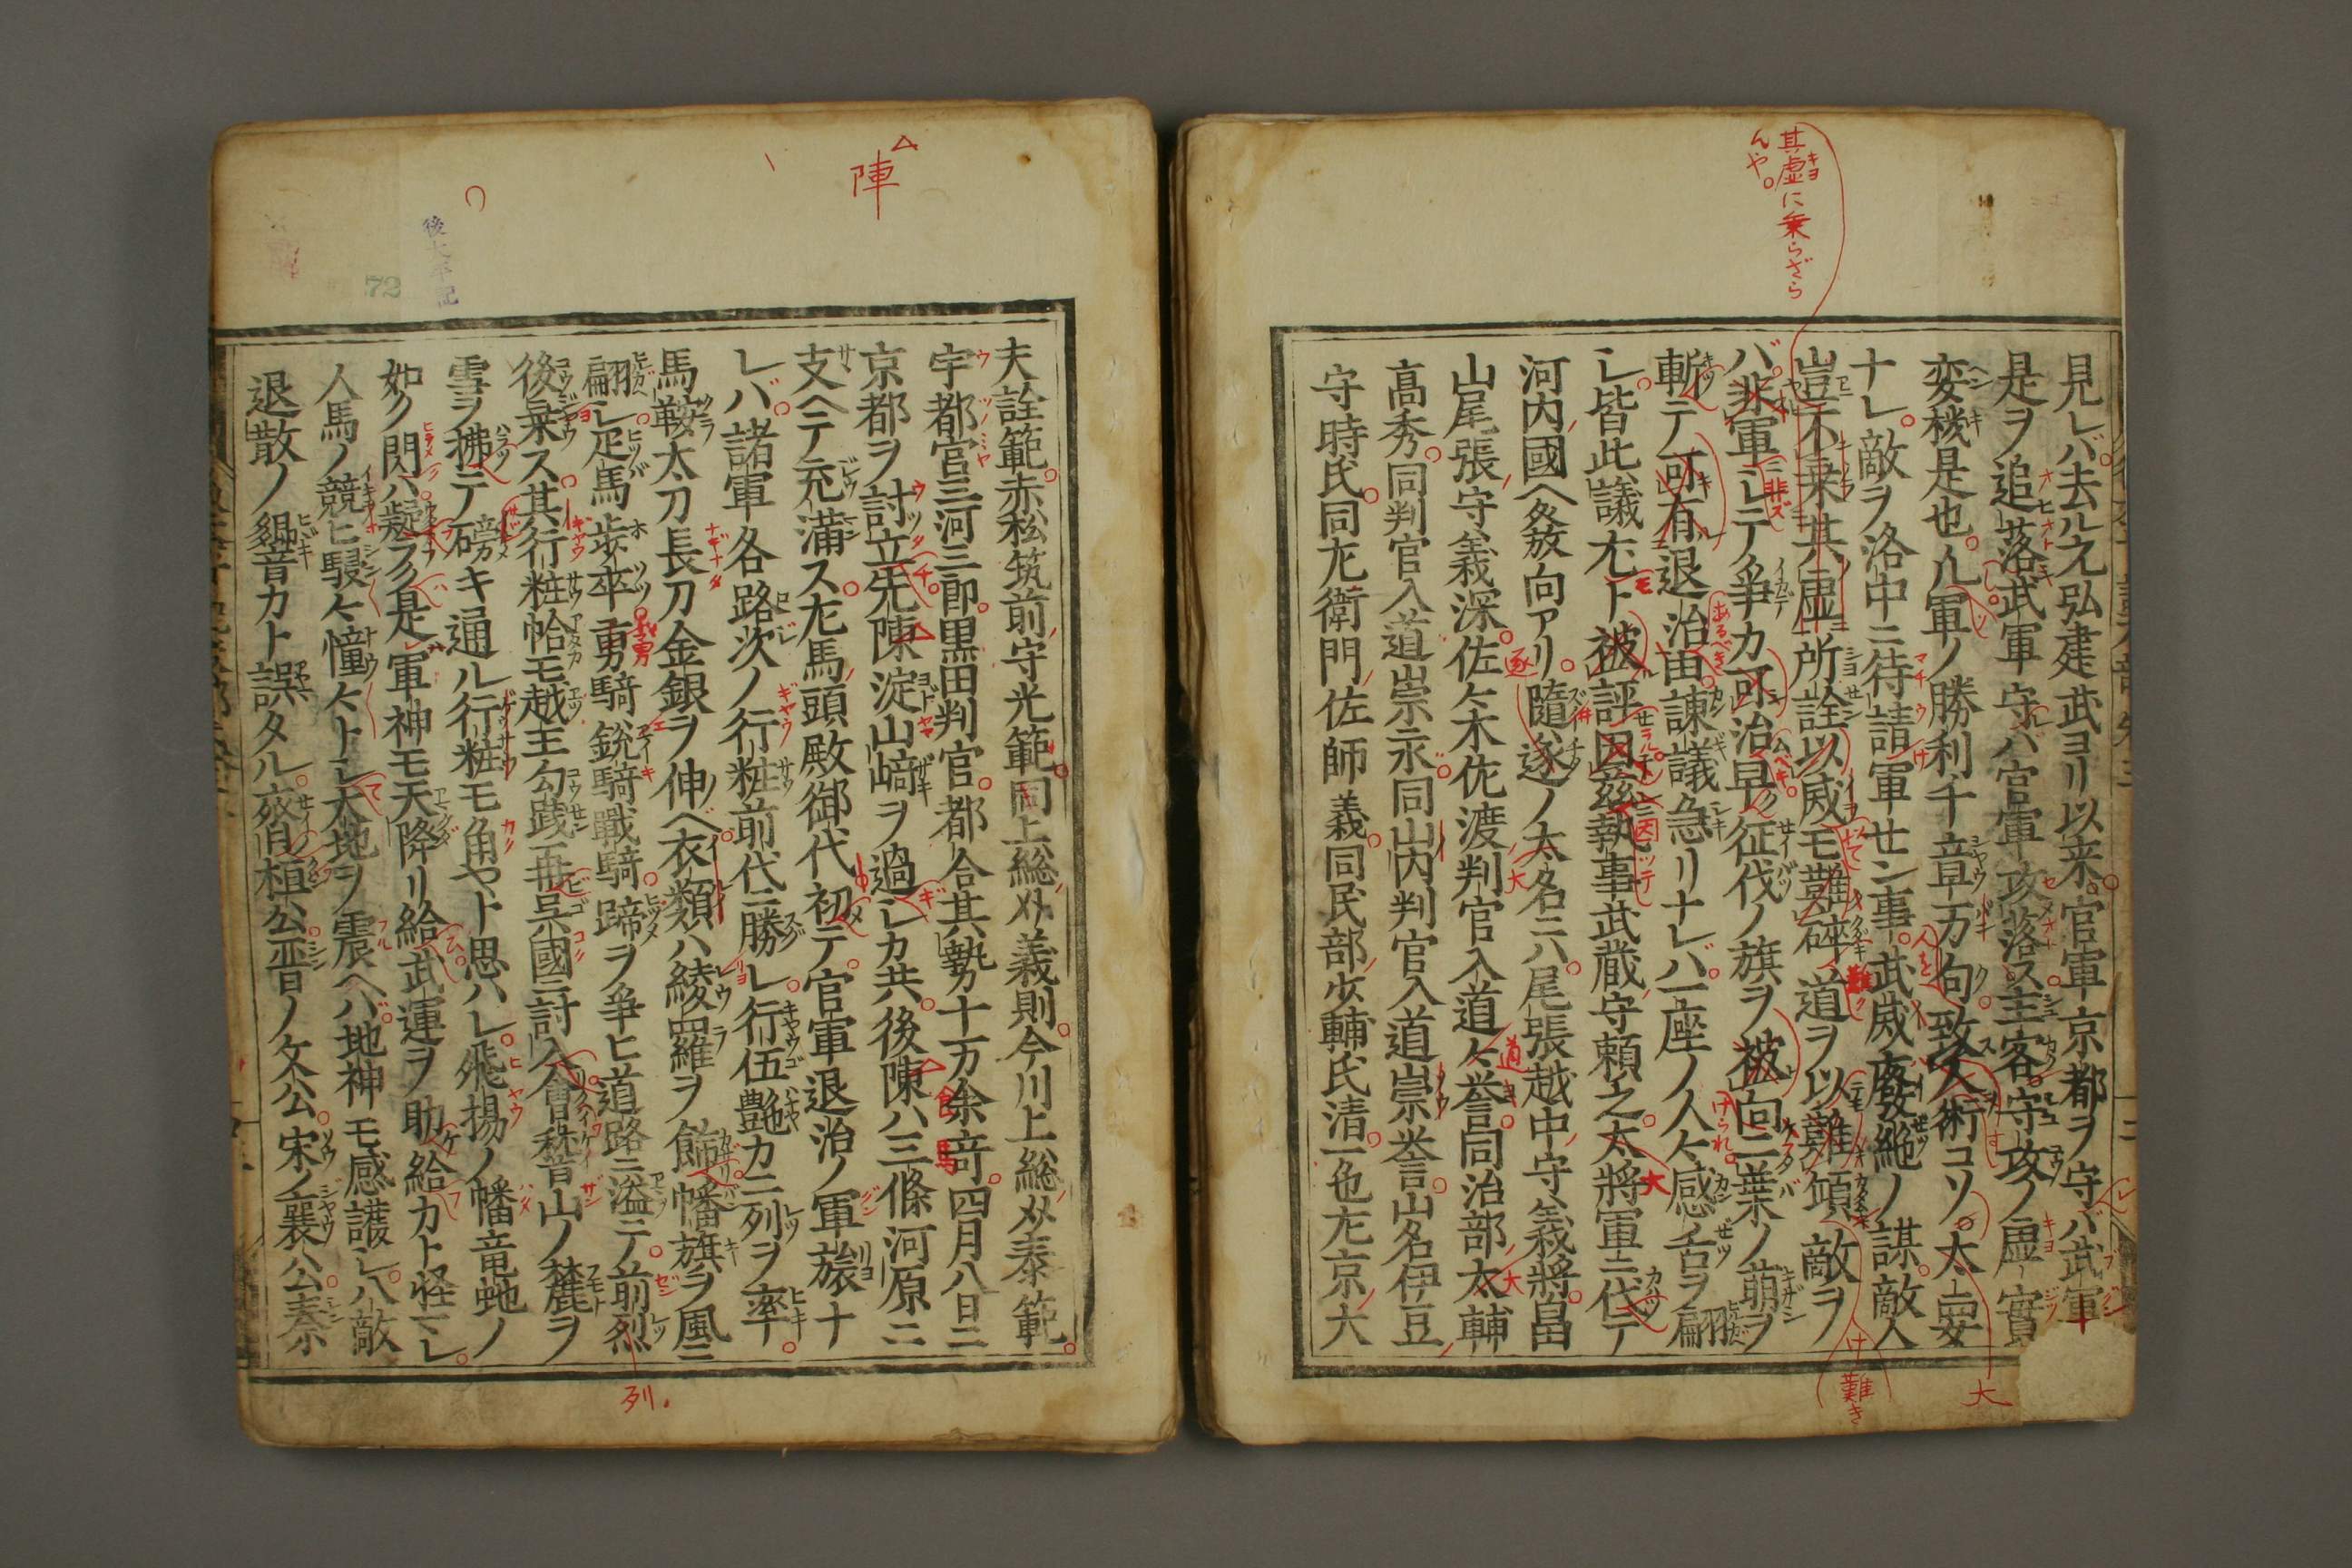 見レバ去ル元弘建武ヨリ以来官軍京都ヲ守バ武軍
是ヲ追落武軍守バ官軍攻落ス主客守攻ノ虚實
変機是也凡軍ノ勝利千章万句致人術コソ太上安
ナレ敵ヲ洛中ニ待請軍センル事武威廢絶ノ謀敵人
豈不乗其虚所詮以威モ難碎道ヲ以難傾敵ヲ
バ非軍シテ争カ可治早征伐ノ旗ヲ被向二葉ノ萌ヲ
斬テ可有退治由諫議急リナレバ一座ノ人々感舌ヲ翩
シ皆此議尤ト被評因茲執事武蔵守頼之大將軍ニ代テ
河内國ヘ発向アリ隨逐ノ大名ニハ尾張越中守義將畠
山尾張守義深佐々木佐渡判官入道々誉同治部太輔
高秀同判官入道崇永同山内判官入道崇誉山名伊豆
守時氏同左衛門佐師義同民部少輔氏清一色左京大
其虚に乗らざら
んや。
け難き
大
夫詮範赤松筑前守光範同上総介義則今川上総介泰範
宇都宮三河三郎黒田判官都合其勢十万余竒四月八日ニ
京都ヲ討立先陳淀山﨑ヲ過シカ共後陳ハ三條河原ニ
支ヘテ充滿ス左馬頭殿御代初テ官軍退治ノ軍旅ナ
レバ諸軍各路次ノ行粧前代ニ勝レ行伍艶カニ列ヲ率
馬鞍太刀長刀金銀ヲ伸ヘ衣類ハ綾羅ヲ飾幡旗ヲ風ニ
翩シ疋馬歩卒勇騎銃騎戰騎蹄ヲ争ヒ道路ニ溢テ前烈
後乗ス其行粧恰モ越王勾踐再呉國ニ討入會稽山ノ麓ヲ
雪ヲ拂テ磅キ通ル行粧モ角ヤト思ハレ飛揚ノ幡竜虵ノ
如ク閃ハ凝フク是軍神モ天降リ給武運ヲ助給カト怪マレ
人馬ノ競ヒ駸々憧々トシ大地ヲ震ヘバ地神モ感護シ八敵
退散ノ綱音カト誤タル齊桓公晋ノ文公宋ノ襄公秦
陣
列
後太平記
72